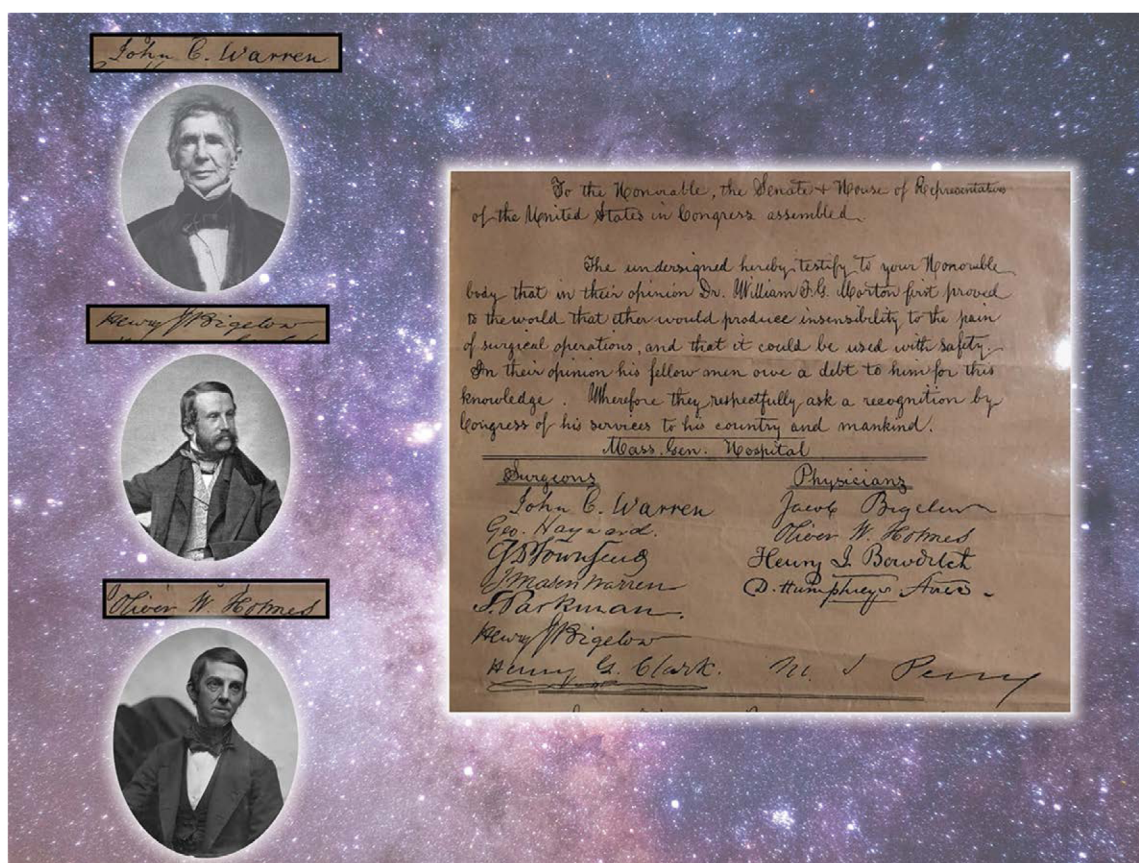 John C. Warren
Henry J Bigelow
Oliver W. Holmes
To the Honorable, the Senate & House of Representatives
of the United States in Congress assembled.
The undersigned hereby testify to your Honorable
body that in their opinion Dr. William T. G. Morton first proved
to the world that ether would produce insensibility to the pain
of surgical operations, and that it could be used with safety.
In their opinion his fellow men owe a debt to him for this
knowledge. Wherefore they respectfully ask a recognition by
Congress of his services to his country and mankind.
Mass. Gen. Hospital
Surgeons
John C. Warren
Geo. Hayward.
S D Townsend
J Mason Warren
S. Parkman.
Henry J Bigelow
Henry G. Clark.
Physicians
Jacob Bigelow
Oliver W. Holmes
Henry I. Bowditch
D. Humphreys Storer.
M. S Perry